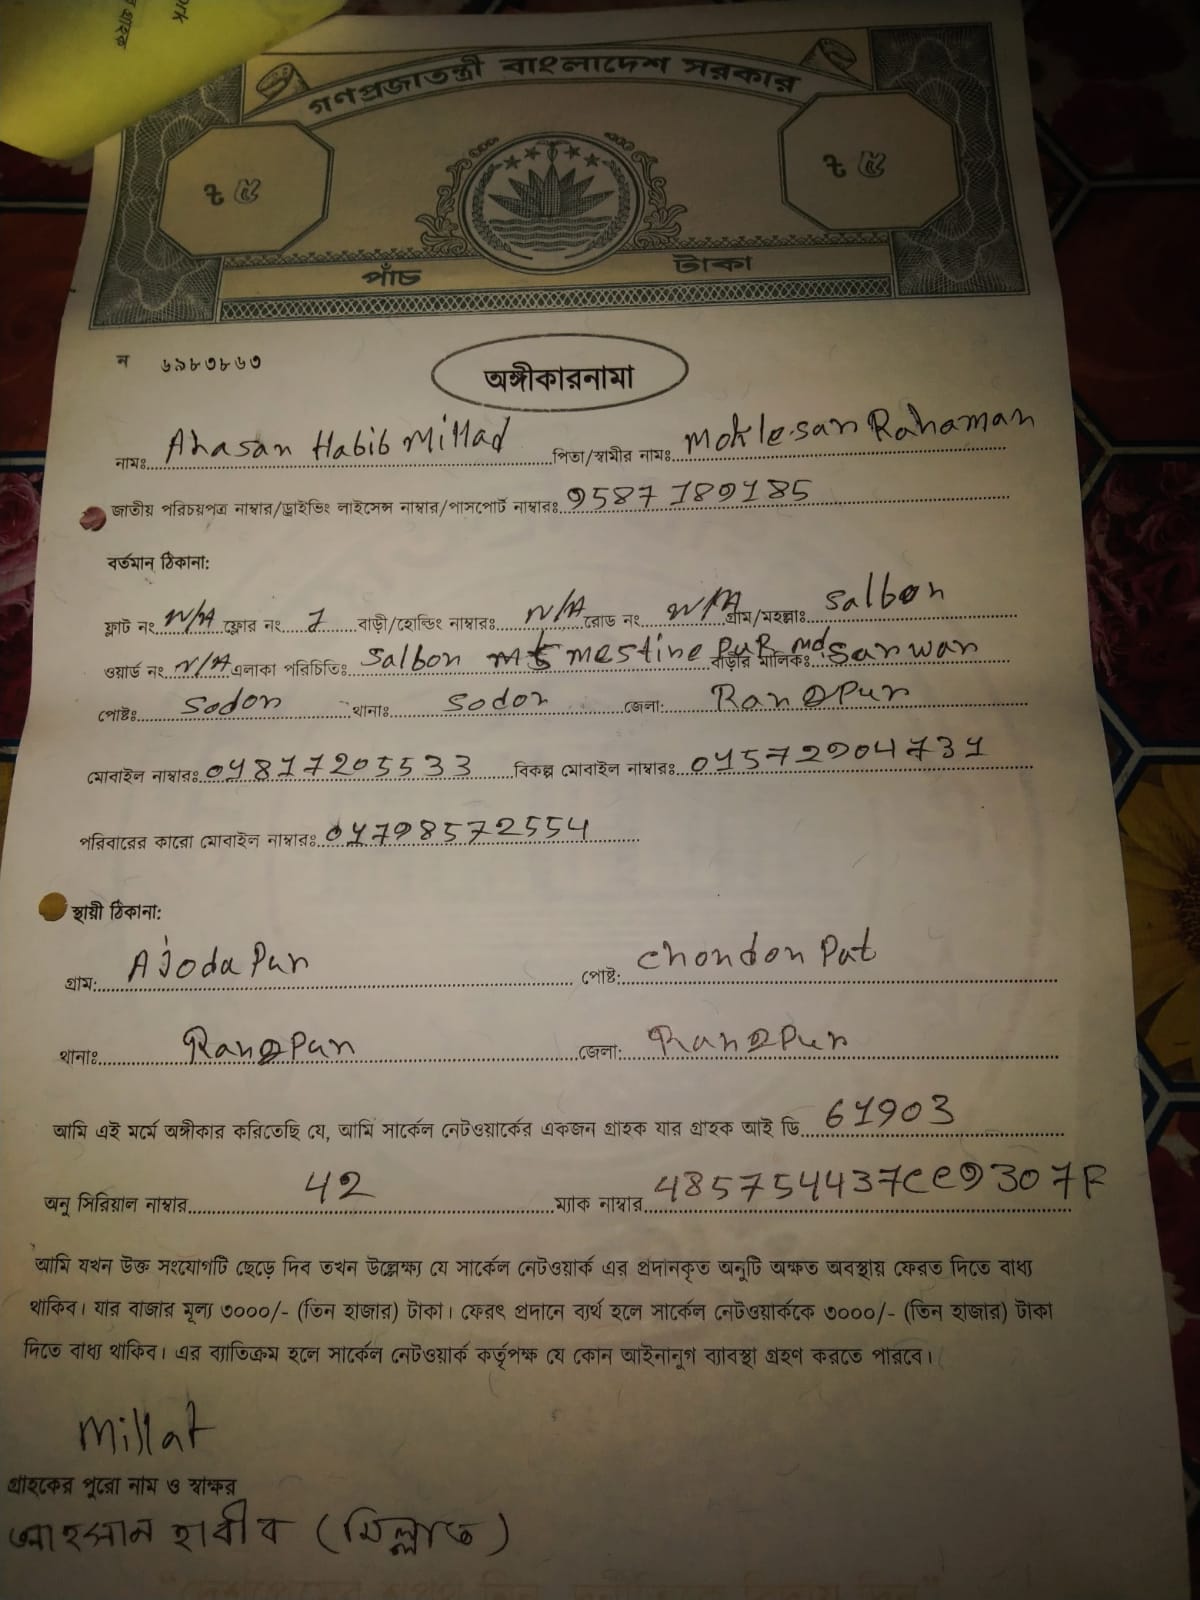 গণপ্রজাতন্ত্রী বাংলাদেশ সরকার
৳ ৫ ৳ ৫
পাঁচ টাকা
ন ৬৯৮৩৮৬৩
অঙ্গীকারনামা
নামঃ Ahasan Habib Millad পিতা/স্বামীর নামঃ Moklesar Rahaman
জাতীয় পরিচয়পত্র নাম্বার/ড্রাইভিং লাইসেন্স নাম্বার/পাসপোর্ট নাম্বারঃ 9587189185
বর্তমান ঠিকানা:
ফ্লাট নং N/A ফ্লোর নং 1 বাড়ী/হোল্ডিং নাম্বারঃ N/A রোড নং N/A গ্রাম/মহল্লাঃ Salbon
ওয়ার্ড নং N/A এলাকা পরিচিতিঃ Salbon mestine Pur বাড়ীর মালিকঃ md. Sarwar
পোষ্টঃ Sodor থানাঃ Sodor জেলা: Rangpur
মোবাইল নাম্বারঃ 01817205533 বিকল্প মোবাইল নাম্বারঃ 01572904731
পরিবারের কারো মোবাইল নাম্বারঃ 01798572554
স্থায়ী ঠিকানা:
গ্রাম: AJodaPur পোষ্ট: Chondon Pat
থানাঃ Rangpur জেলা: Rangpur
আমি এই মর্মে অঙ্গীকার করিতেছি যে, আমি সার্কেল নেটওয়ার্কের একজন গ্রাহক যার গ্রাহক আই ডি 61903
অনু সিরিয়াল নাম্বার 42 ম্যাক নাম্বার 485754437CC9307F
আমি যখন উক্ত সংযোগটি ছেড়ে দিব তখন উল্লেক্ষ্য যে সার্কেল নেটওয়ার্ক এর প্রদানকৃত অনুটি অক্ষত অবস্থায় ফেরত দিতে বাধ্য
থাকিব। যার বাজার মূল্য ৩০০০/- (তিন হাজার) টাকা। ফেরৎ প্রদানে ব্যর্থ হলে সার্কেল নেটওয়ার্ককে ৩০০০/- (তিন হাজার) টাকা
দিতে বাধ্য থাকিব। এর ব্যাতিক্রম হলে সার্কেল নেটওয়ার্ক কর্তৃপক্ষ যে কোন আইনানুগ ব্যাবস্থা গ্রহণ করতে পারবে।
Millat
গ্রাহকের পুরো নাম ও স্বাক্ষর
আহসান হাবীব (মিল্লাত)